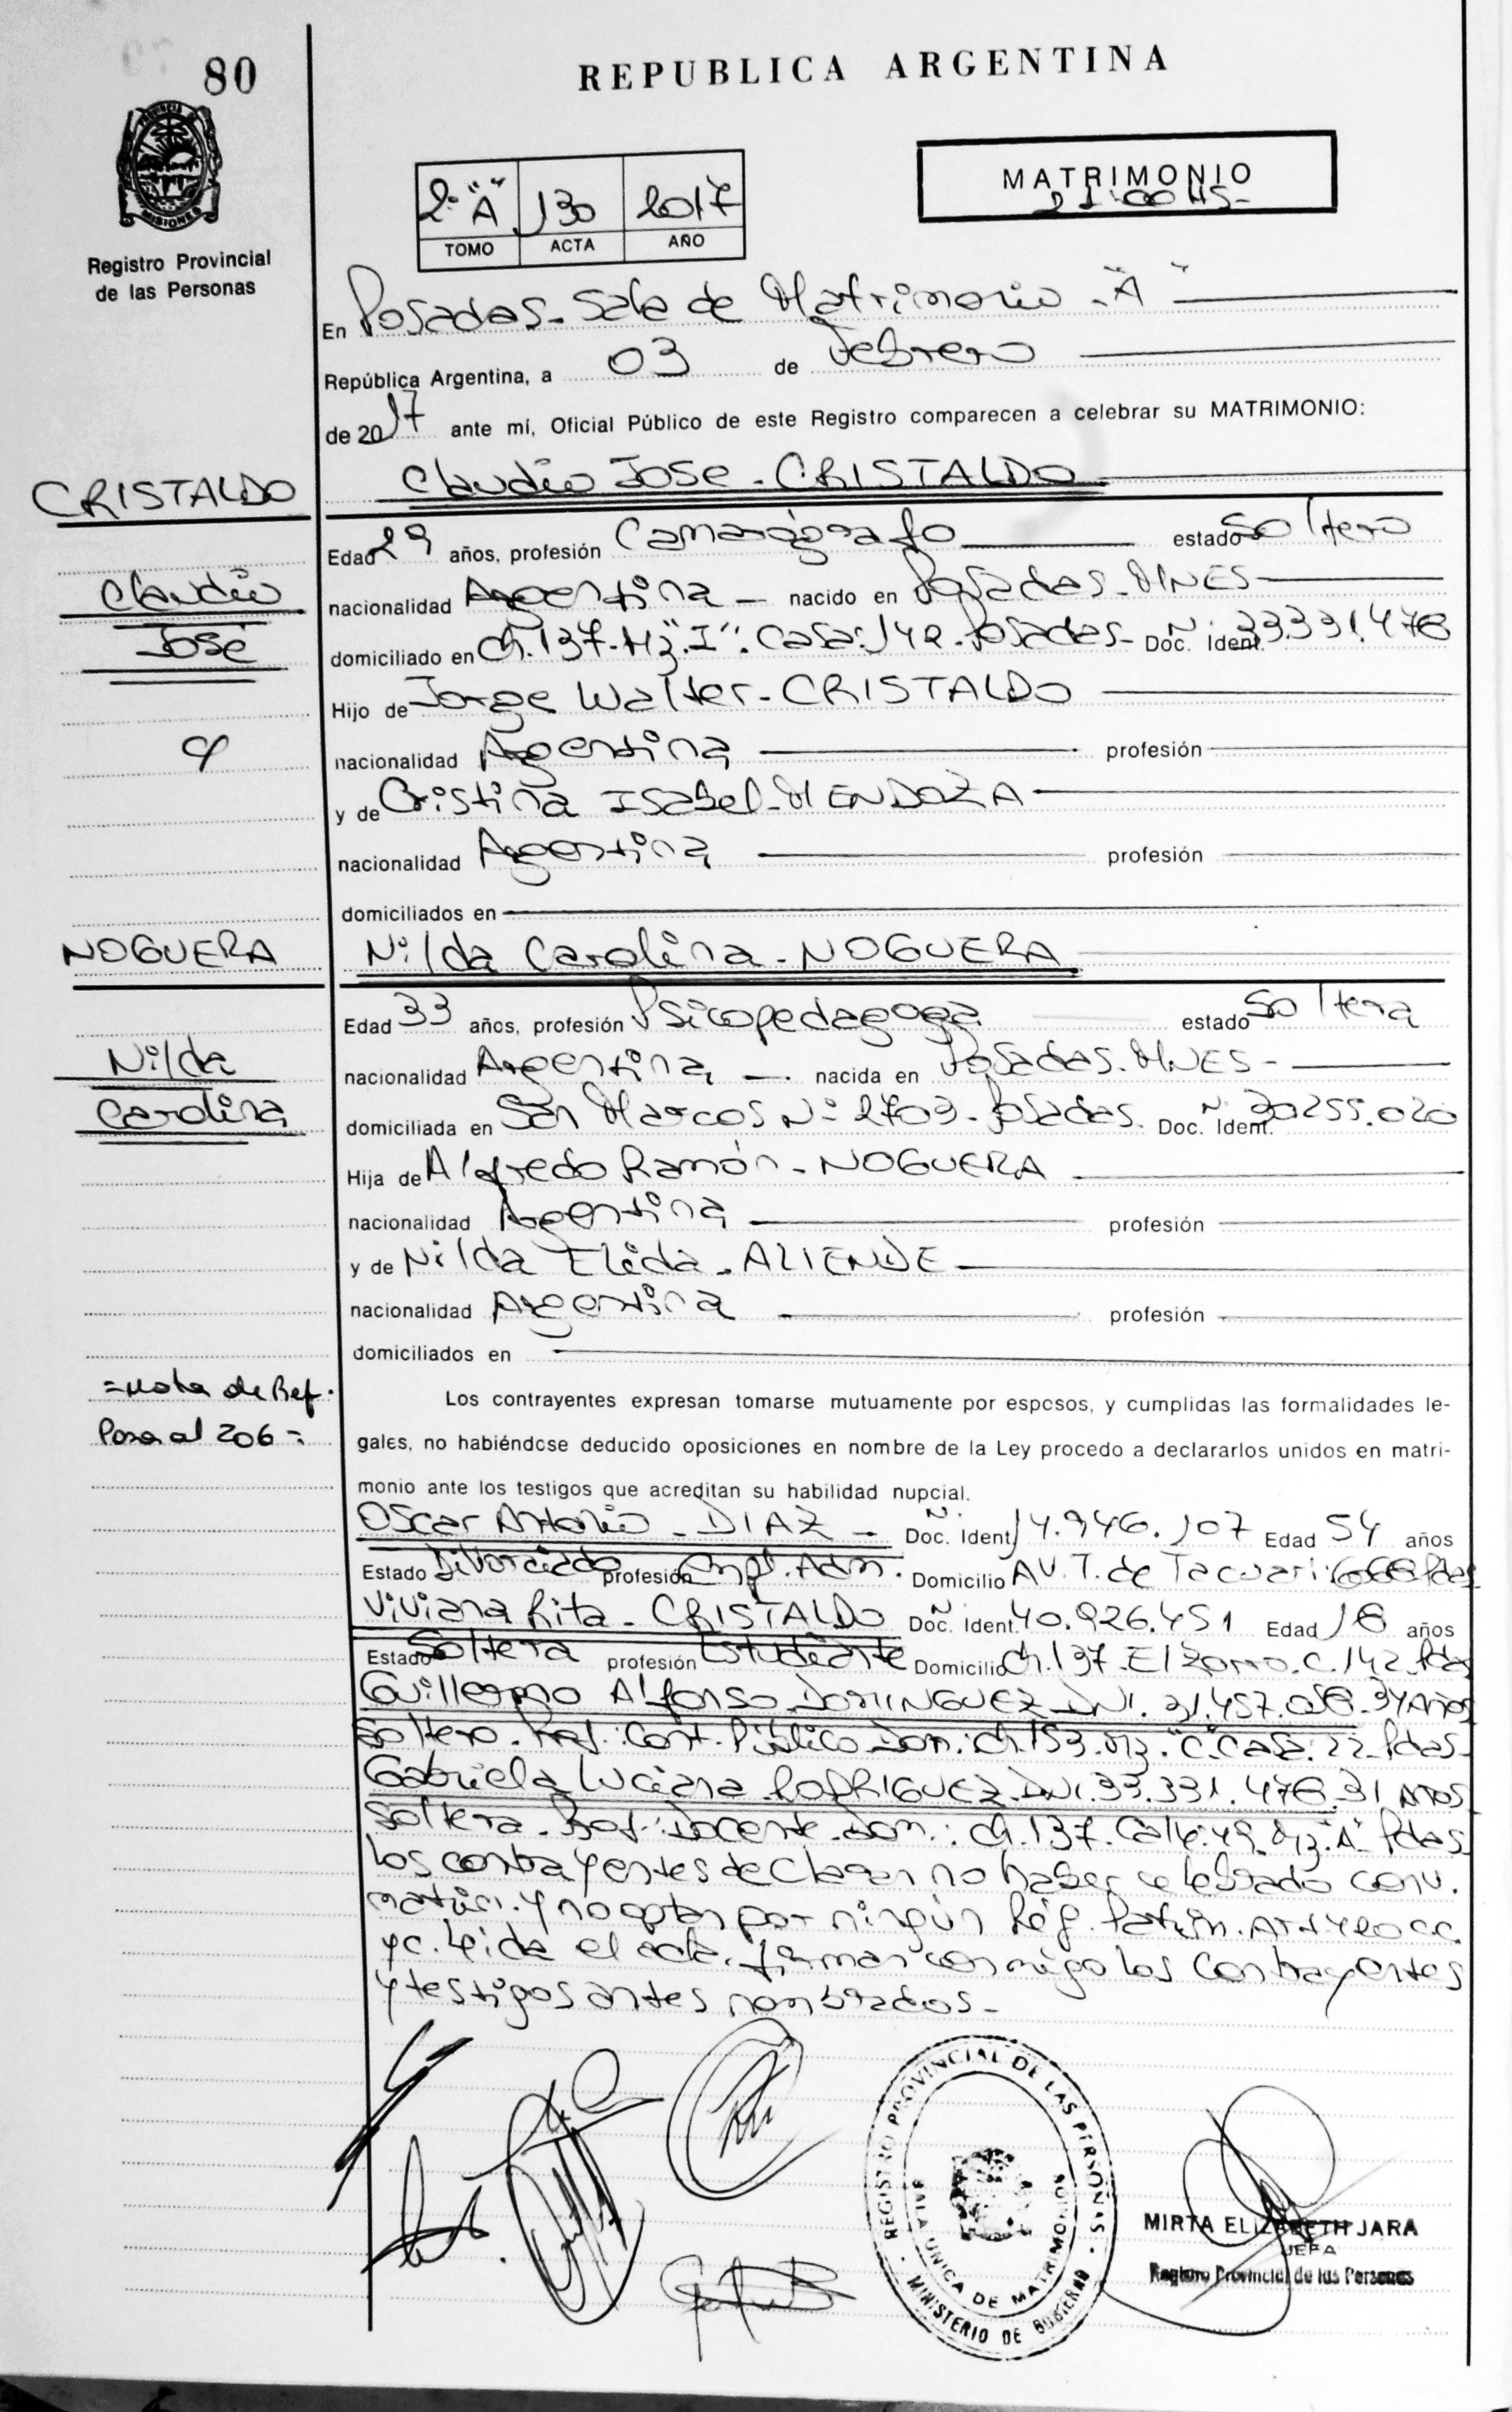 80
REPUBLICA ARGENTINA
MISIONES
Registro Provincial
de las Personas
2º "A" 130 2017
TOMO ACTA AÑO
MATRIMONIO
21:00 HS-
En Posadas-Sala de Matrimonio-"A"
República Argentina, a 03 de Febrero
de 2017 ante mí, Oficial Público de este Registro comparecen a celebrar su MATRIMONIO:
CRISTALDO
Claudio José-CRISTALDO
Edad 29 años, profesión Camarógrafo estado Soltero
Claudio
nacionalidad Argentina nacido en Posadas-MNES
José
domiciliado en Ch.137-Mz."I".Casa:142-Posadas- Doc. Ident. Nº 33.331.478
Hijo de Jorge Walter-CRISTALDO
y
nacionalidad Argentina profesión
y de Cristina Isabel-MENDOZA
nacionalidad Argentina profesión
domiciliados en
NOGUERA
Nilda Carolina-NOGUERA
Edad 33 años, profesión Psicopedagoga estado Soltera
Nilda
nacionalidad Argentina nacida en Posadas-MNES-
Carolina
domiciliada en San Marcos Nº 2703-Posadas. Doc. Ident. Nº 30255.020
Hija de Alfredo Ramón-NOGUERA
nacionalidad Argentina profesión
y de Nilda Elida-ALIENDE
nacionalidad Argentina profesión
domiciliados en
=Nota de Ref.
Pasa al 206=
Los contrayentes expresan tomarse mutuamente por esposos, y cumplidas las formalidades le-
gales, no habiéndose deducido oposiciones en nombre de la Ley procedo a declararlos unidos en matri-
monio ante los testigos que acreditan su habilidad nupcial.
Oscar Antonio-DIAZ- Doc. Ident. Nº 14.946.107 Edad 54 años
Estado Divorciado profesión Empl.Adm. Domicilio AV.T.de Tacuarí: Pdas
Viviana Rita-CRISTALDO Doc. Ident. Nº 40.926.451 Edad 18 años
Estado Soltera profesión Estudiante Domicilio Ch.137-El Zorro.C.142-Pdas
Guillermo Alfonso DOMINGUEZ-DNI.31.457.058-34 Años
Soltero-Prof.:Cont.Público-Dom:Ch.153.Mz."C"Casa:22-Pdas-
Gabriela Luciana RODRIGUEZ-DNI.33.331.478-31 Años
Soltera-Prof.:Docente-Dom.:Ch.137.Calle:49-Mz."A"Pdas
Los contrayentes declaran no haber celebrado conv.
matrim. y no optan por ningún Rég. Patrim. C.C.
yc. Leída el acta, firman conmigo los contrayentes
y testigos antes nombrados-
REGISTRO PROVINCIAL DE LAS PERSONAS
UNICA DE MATRIMONIOS
MINISTERIO DE GOBIERNO
MIRTA ELIZABETH JARA
JEFA
Registro Provincial de las Personas